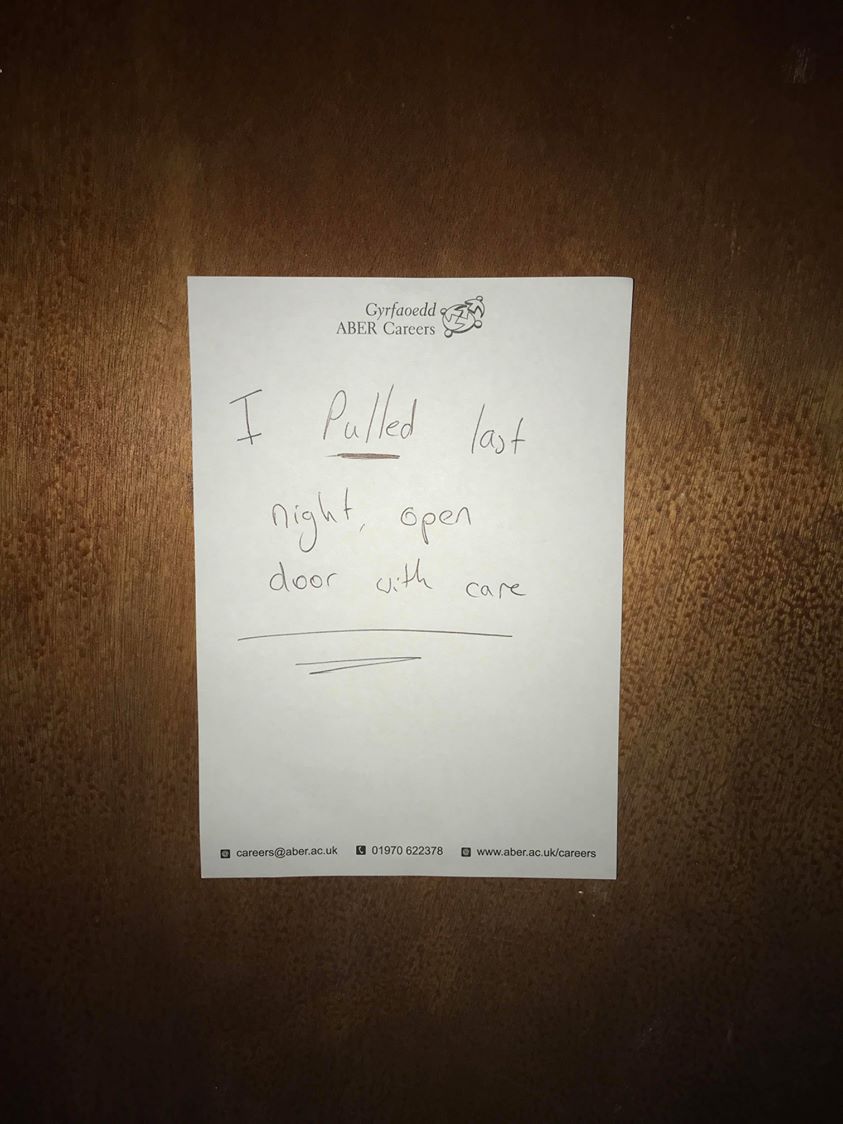 Gyrfaoedd
ABER Careers
I Pulled last
night, open
door with care
careers@aber.ac.uk 01970 622378 www.aber.ac.uk/careers